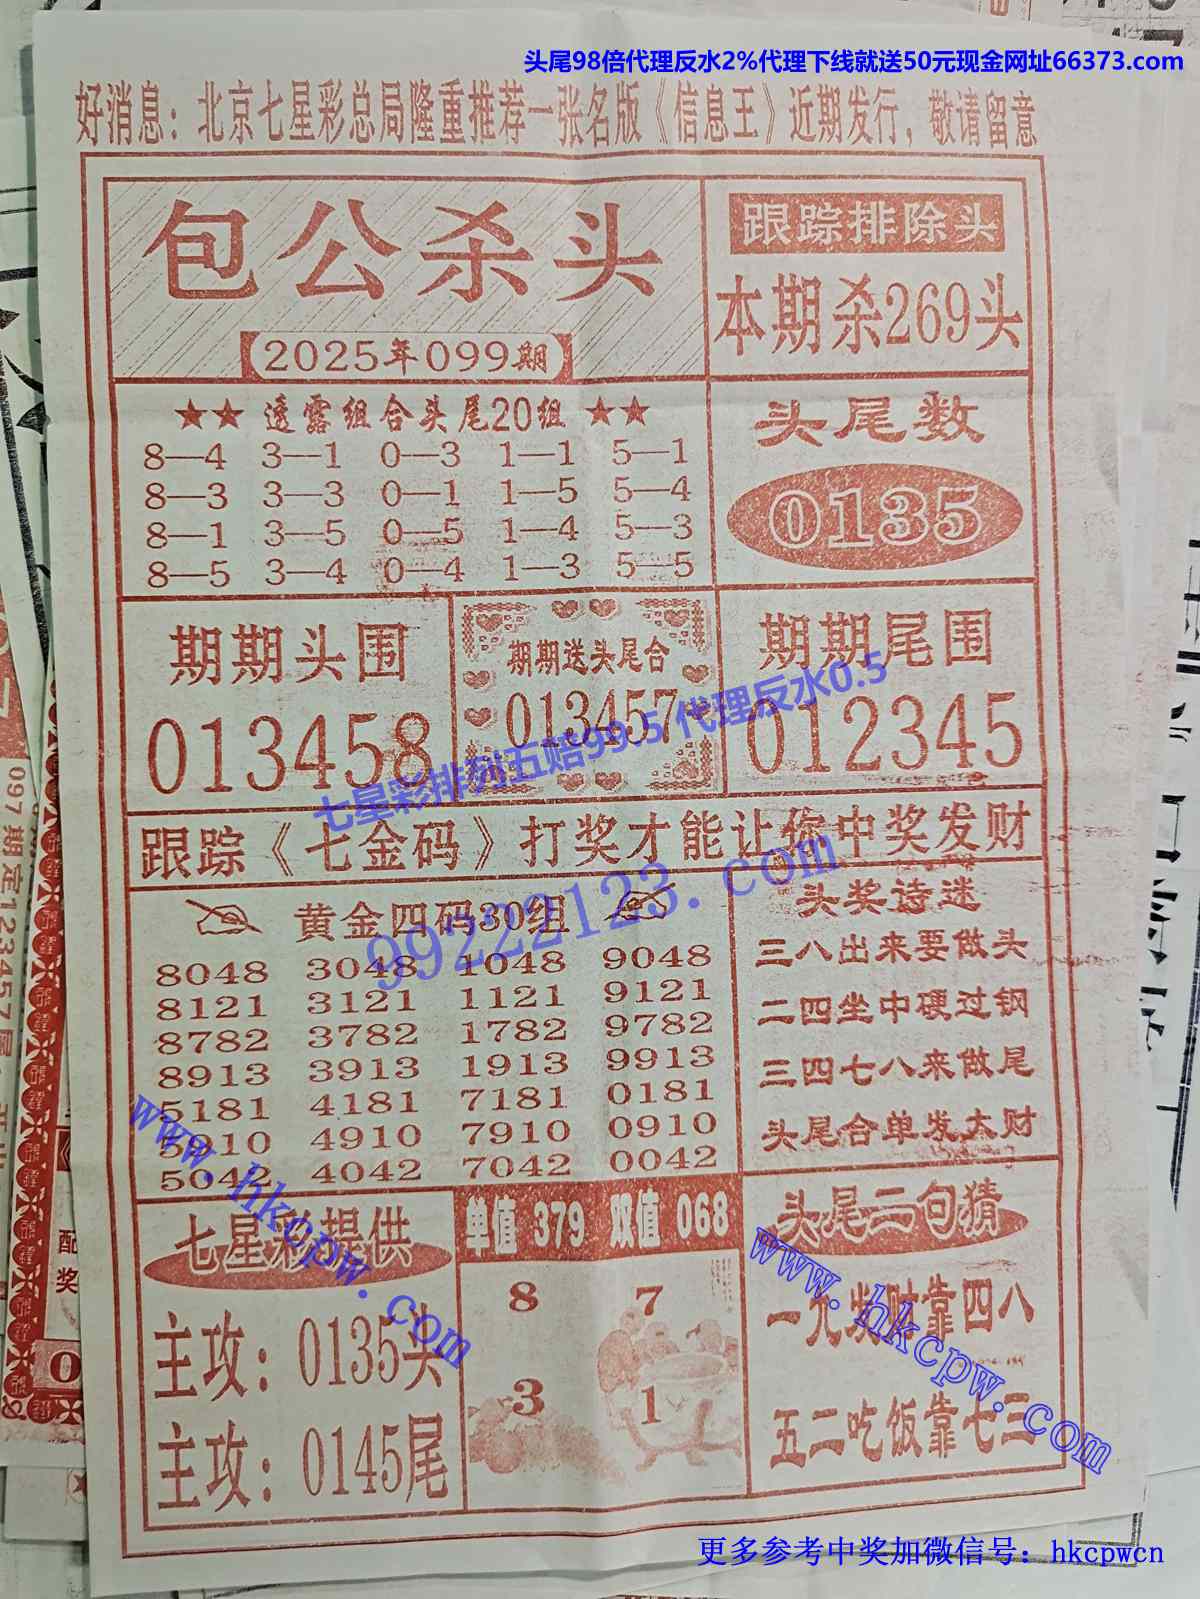 头尾98倍代理反水2%代理下线就送50元现金网址66373.com
好消息：北京七星彩总局隆重推荐一张名版《信息王》近期发行，敬请留意
包公杀头
2025年099期
跟踪排除头
本期杀269头
★★ 透露组合头尾20组 ★★
8—4 3—1 0—3 1—1 5—1
8—3 3—3 0—1 1—5 5—4
8—1 3—5 0—5 1—4 5—3
8—5 3—4 0—4 1—3 5—5
头尾数
0135
期期头围
013458
期期送头尾合
013457
期期尾围
012345
七星彩排列五赔99.5 代理反水0.5
跟踪《七金码》打奖才能让你中奖发财
99222123.com
黄金四码30组
8048 3048 1048 9048
8121 3121 1121 9121
8782 3782 1782 9782
8913 3913 1913 9913
5181 4181 7181 0181
5910 4910 7910 0910
5042 4042 7042 0042
头奖诗迷
三八出来要做头
二四坐中硬过钢
三四七八来做尾
头尾合单发大财
www.hkcpw.com
七星彩提供
主攻：0135头
主攻：0145尾
单值 379 双值 068
8 7
3 1
头尾二句猜
一九发财靠四八
五二吃饭靠七三
www.hkcpw.com
更多参考中奖加微信号：hkcpwcn
097期定123457尾
配
奖